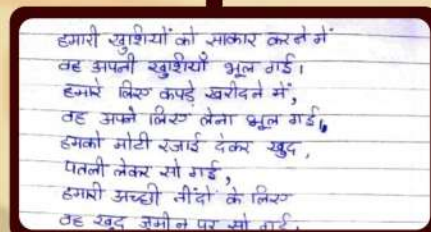 हमारी खुशियों को साकार करने में
वह अपनी खुशियाँ भूल गई।
हमारे लिए कपड़े खरीदने में,
वह अपने लिए लेना भूल गई।
हमको मोटी रजाई देकर खुद,
पतली लेकर सो गई,
हमारी अच्छी नींदों के लिए
वह खुद ज़मीन पर सो गई,